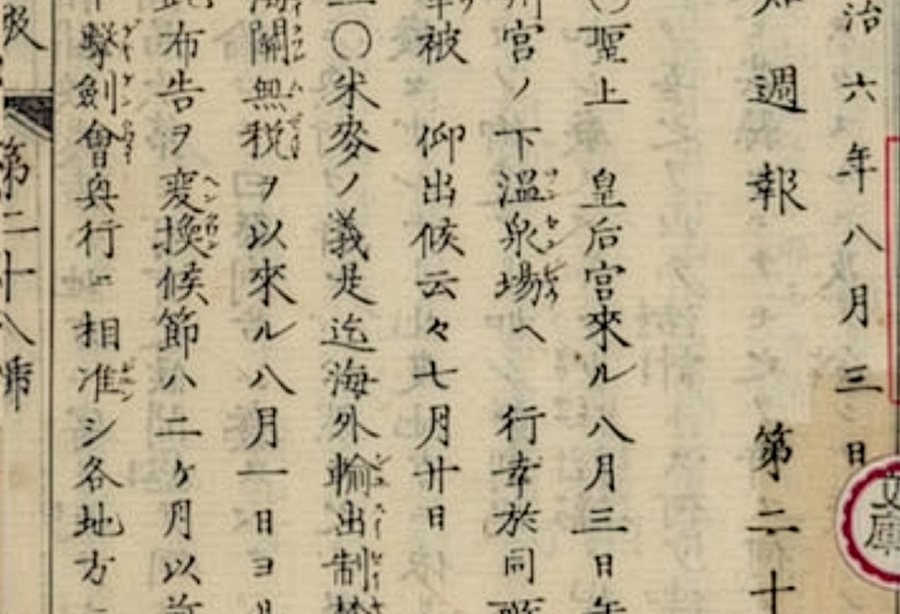 治六年八月三日
週報 第二十
聖上 皇后宮來ル八月三日
宮ノ下溫泉場ヘ 行幸於同
被 仰出候云々七月廿日
〇米麥ノ義是迄海外輸出制
關無税ヲ以來ル八月一日ヨ
布告ヲ変換候節ハ二ケ月以
擊劍會興行ニ相准シ各地方
第二十八号
文庫